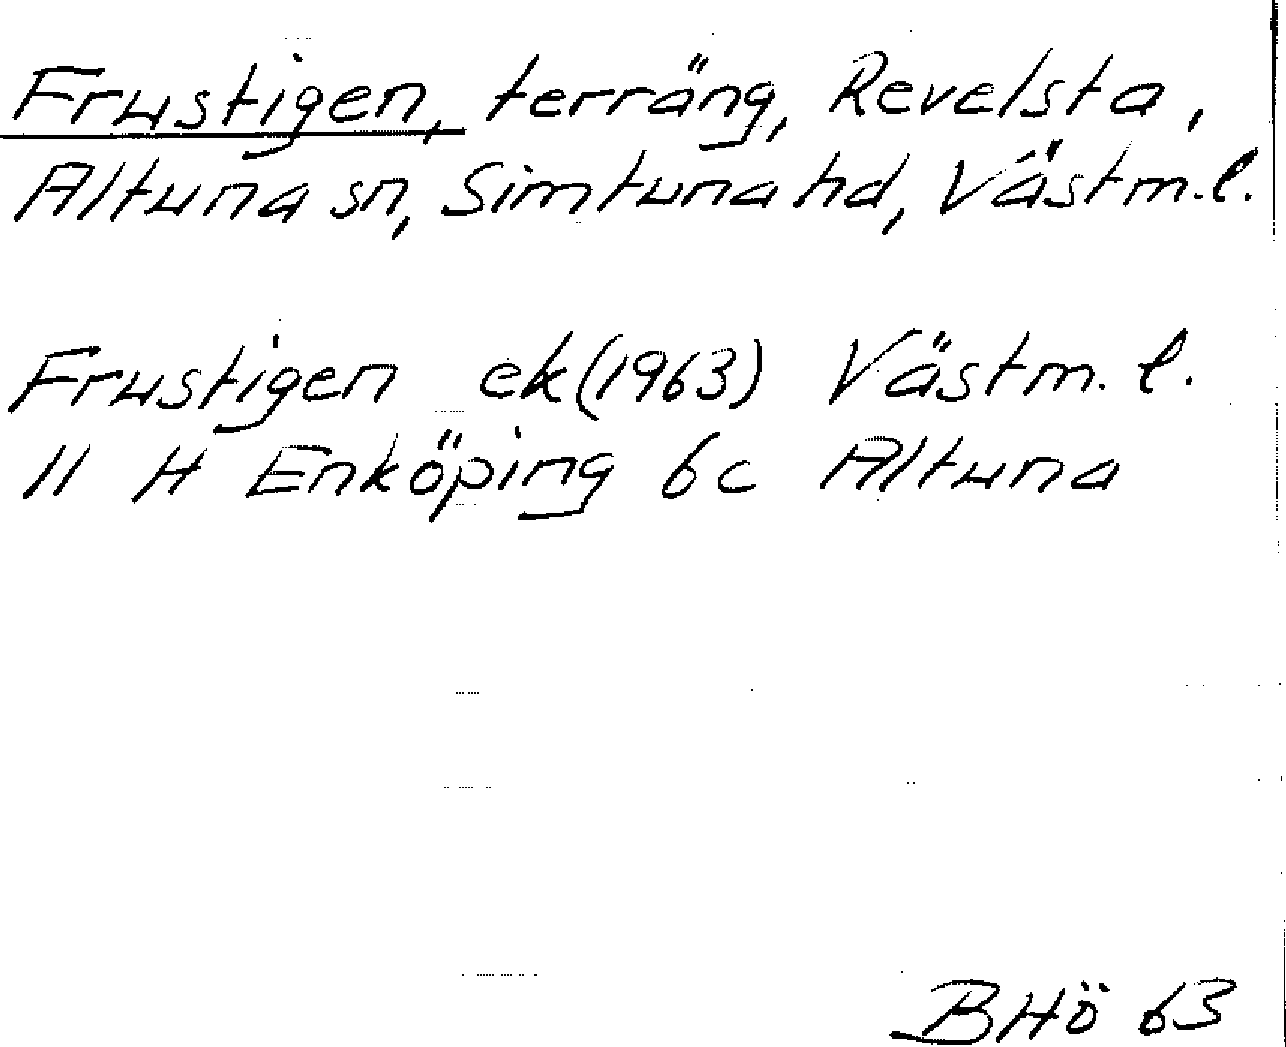 Frustigen, terräng, Revelsta,
Altuna sn, Simtuna hd, Västm.l.
Frustigen ek(1963) Västm.l.
11 H Enköping 6c Altuna
BHö 63